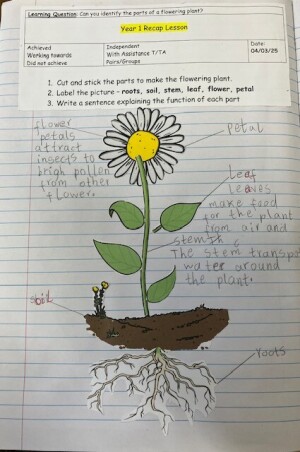 Learning Question: Can you identify the parts of a flowering plant?
Year 1 Recap Lesson
Achieved
Working towards
Did not achieve
Independent
With Assistance T/TA
Pairs/Groups
Date:
04/03/25
1. Cut and stick the parts to make the flowering plant.
2. Label the picture - roots, soil, stem, leaf, flower, petal
3. Write a sentence explaining the function of each part
flower
petals
attract
insects to
brigh pallen
from other
flower.
Petal
leaf
leaves
make food
for the plant
from air and
stem
The stem transpo
water around
the plant.
soil
roots